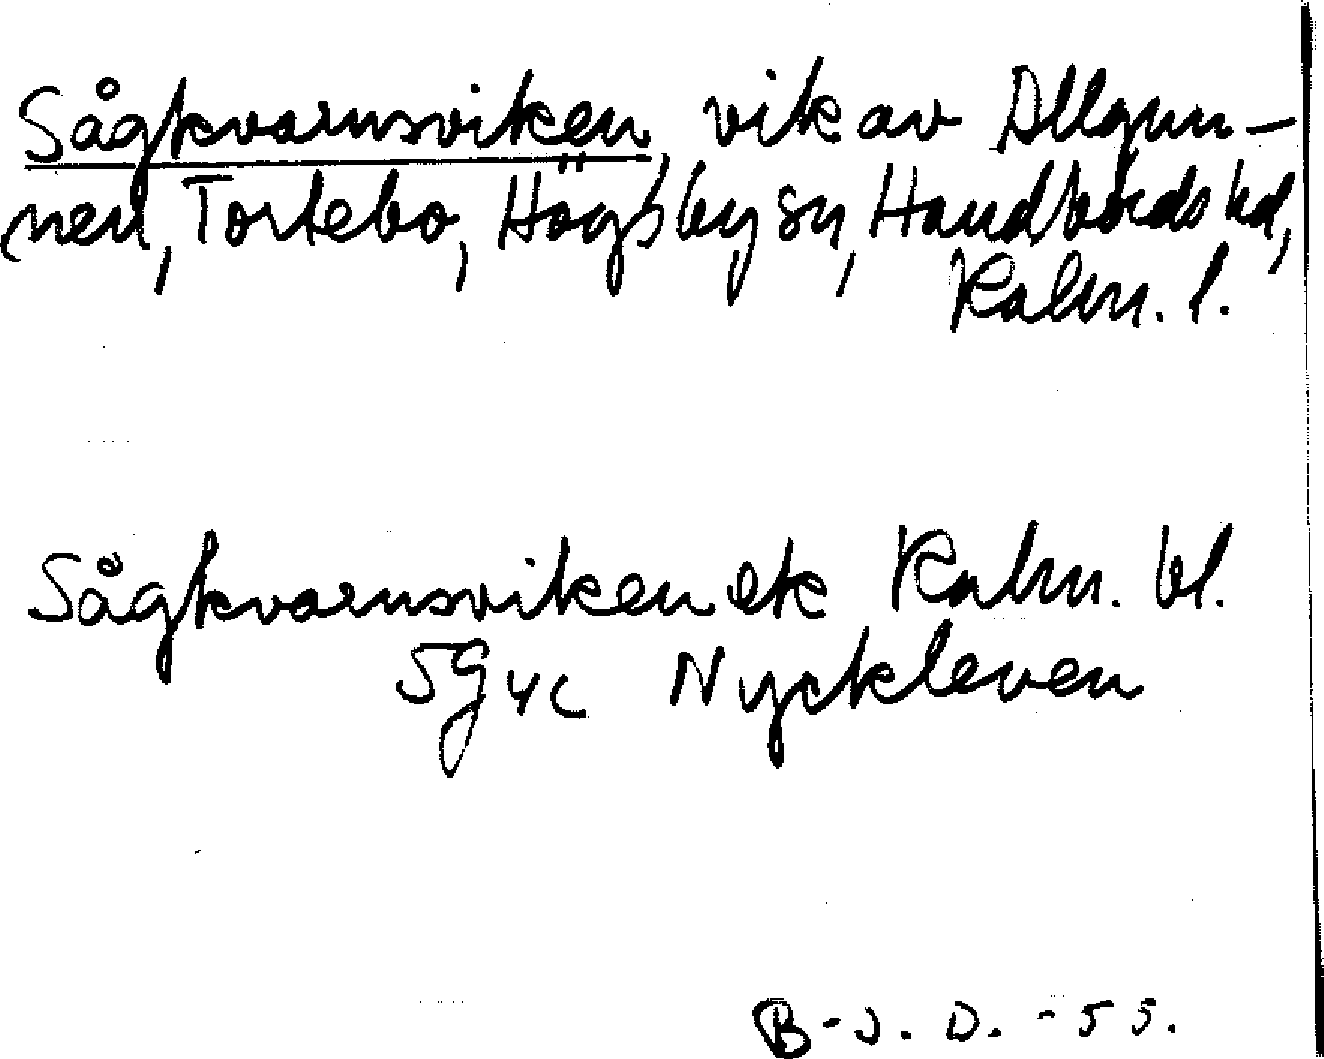 Sågkvarnsviken, vik av Allgun-
nen, Tortebo, Högsby sn, Handbörds hd,
Kalm. l.
Sågkvarnsviken ek Kalm. bl.
5g4c Nyckleven
B-J. D. -55.